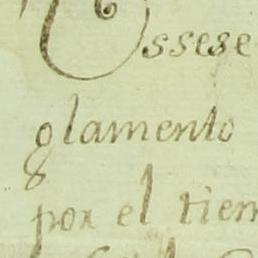 Essese
glamento
por el tiem